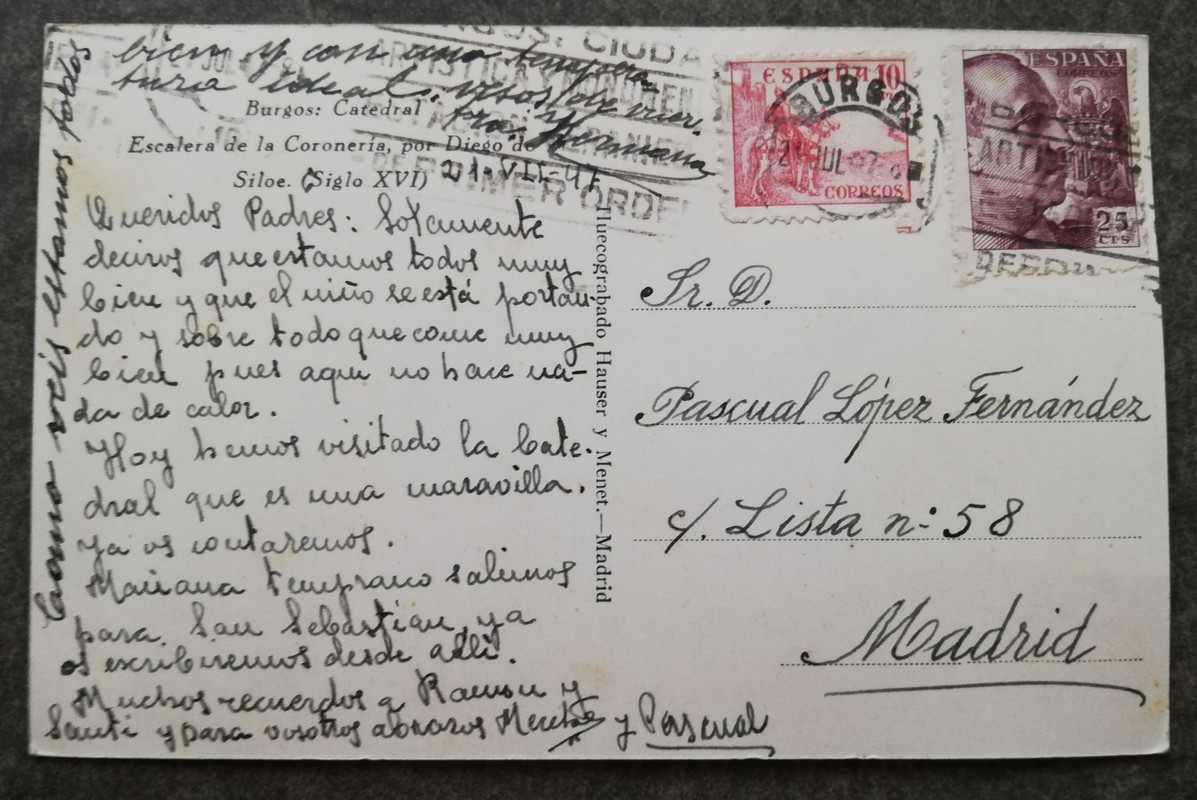 Burgos: Catedral
Escalera de la Coronería, por Diego de
Siloe. (Siglo XVI)
21-VII-47
Queridos Padres: Solamente
deciros que estamos todos muy
bien y que el niño se está portan-
do y sobre todo que come muy
bien pues aquí no hace na-
da de calor.
Hoy hemos visitado la Cate-
dral que es una maravilla.
Ya os contaremos.
Mañana temprano salimos
para San Sebastián, ya
os escribiremos desde allí.
Muchos recuerdos a Ramón y
Santi y para vosotros abrazos y Pascual
Como veis estamos todos
bien y con una tempera
tura ideal. Besos de
hermana
Huecograbado Hauser y Menet.—Madrid
ESPAÑA 10
CORREOS
ESPAÑA
CORREOS
25
CTS
BURGOS
21 JUL 47
BURGOS: CIUDA
ARTISTICA Y
DE PRIMER ORDEN
ARTISTICA
Sr. D.
Pascual López Fernández
c/. Lista nº 58
Madrid